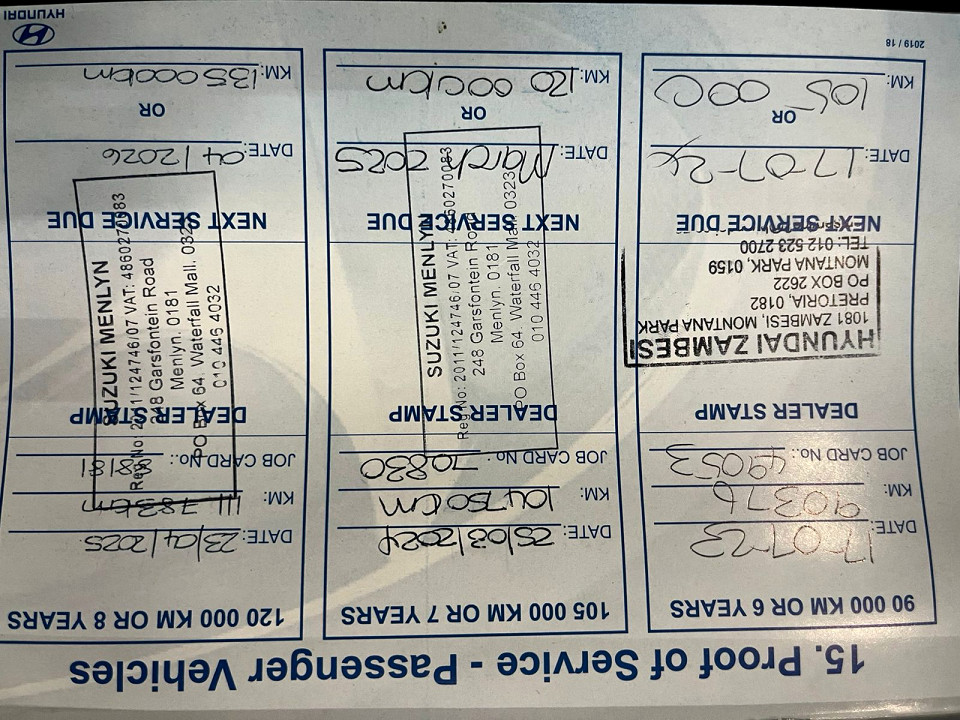 15. Proof of Service - Passenger Vehicles
90 000 KM OR 6 YEARS
DATE: 17-07-23
KM: 90376
JOB CARD No.: 49053
DEALER STAMP
HYUNDAI ZAMBESI
1081 ZAMBESI, MONTANA PARK
PRETORIA, 0182
PO BOX 2622
MONTANA PARK, 0159
TEL: 012 523 2700
NEXT SERVICE DUE
DATE: 17-07-24
OR
KM: 105 000
105 000 KM OR 7 YEARS
DATE: 25/03/2024
KM: 104750km
JOB CARD No.: 70830
DEALER STAMP
SUZUKI MENLYN
Reg No: 2011/124746/07 VAT: 4860270683
248 Garsfontein Road
Menlyn. 0181
PO Box 64. Waterfall Mall. 0323
010 446 4032
NEXT SERVICE DUE
DATE: March 2025
OR
KM: 120 000km
120 000 KM OR 8 YEARS
DATE: 23/04/2025
KM: 111 783km
JOB CARD No.:
DEALER STAMP
SUZUKI MENLYN
Reg No: 2011/124746/07 VAT: 4860270683
248 Garsfontein Road
Menlyn. 0181
PO Box 64. Waterfall Mall. 0323
010 446 4032
NEXT SERVICE DUE
DATE: 04/2026
OR
KM: 135 000km
2019 / 18
HYUNDAI